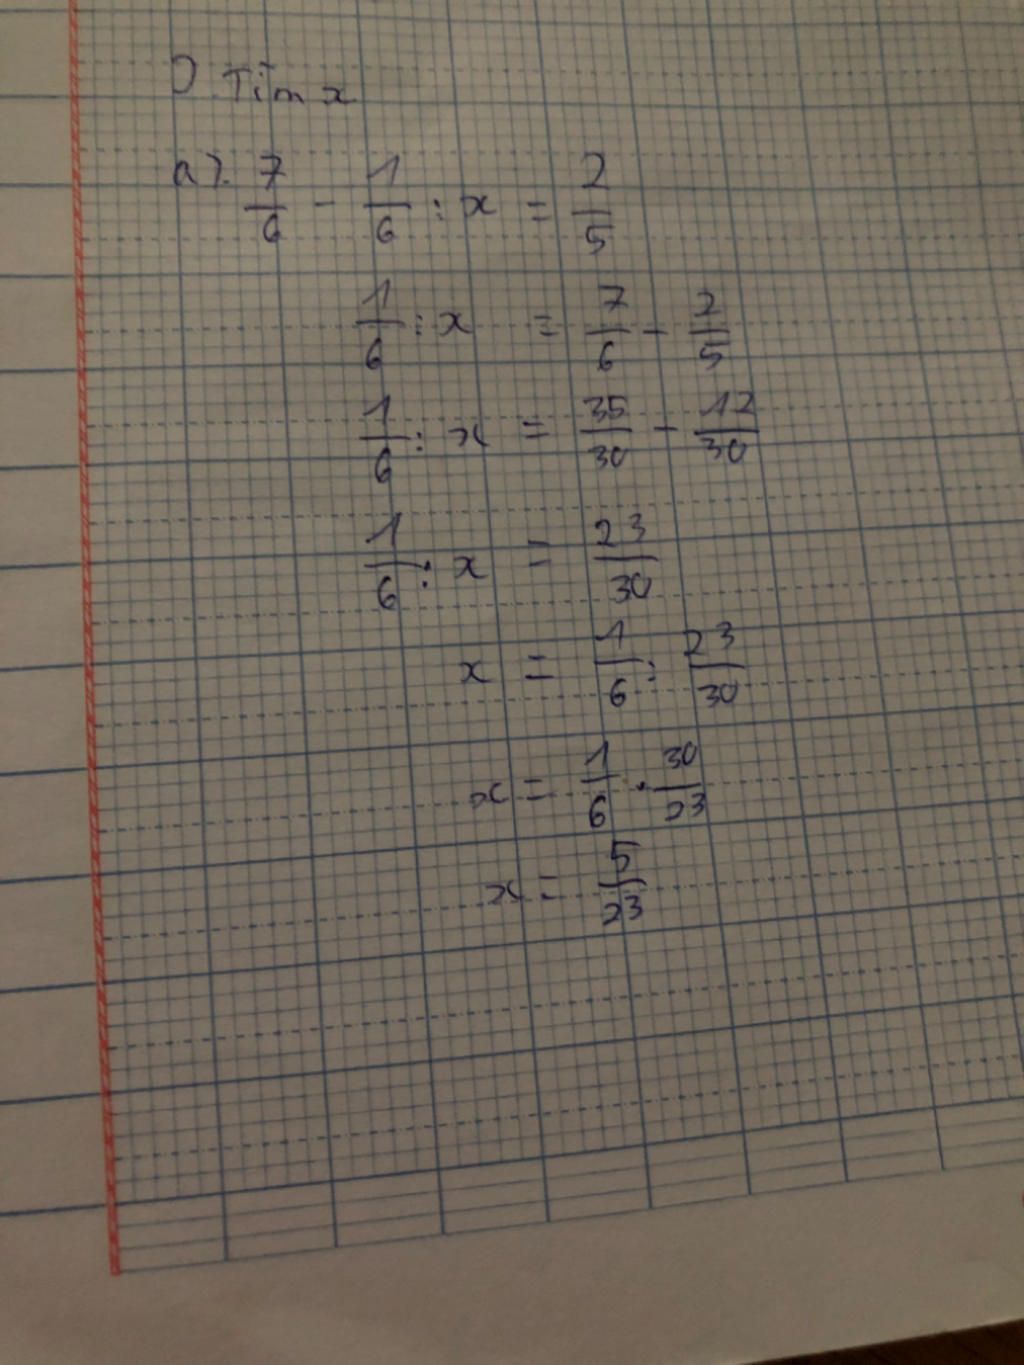 ) Tìm x
a). 7/6 - 1/6 : x = 2/5
1/6 : x = 7/6 - 2/5
1/6 : x = 35/30 - 12/30
1/6 : x = 23/30
x = 1/6 : 23/30
x = 1/6 . 30/23
x = 5/23